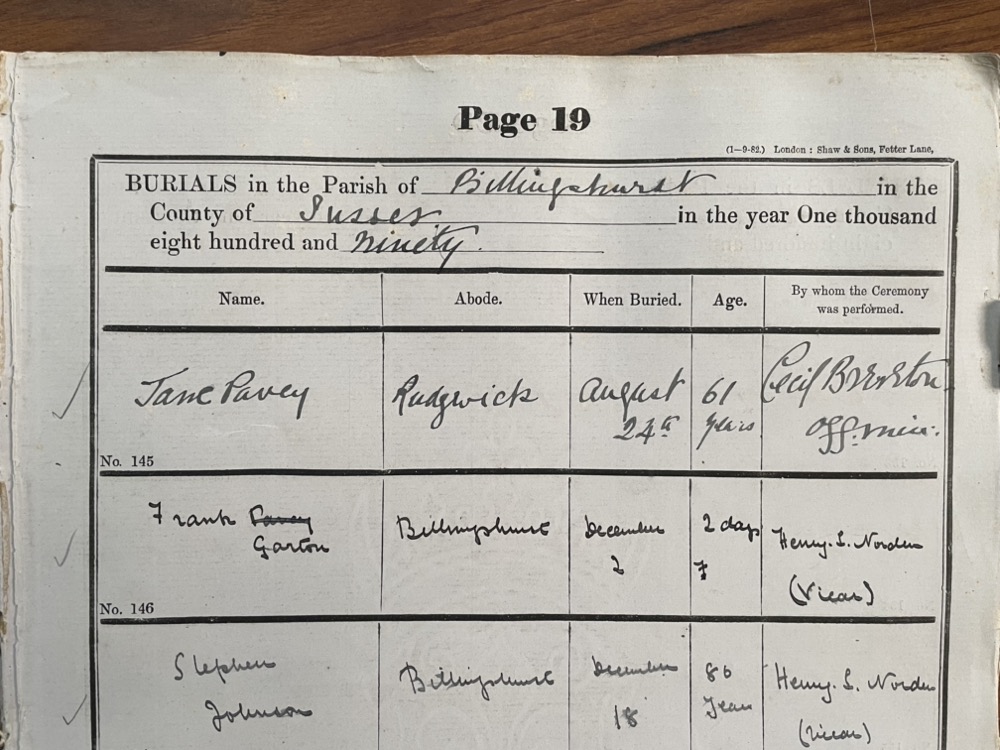 Page 19
(1—9-82.) London : Shaw & Sons, Fetter Lane,
BURIALS in the Parish of Billingshurst in the
County of Sussex in the year One thousand
eight hundred and ninety.
Name. Abode. When Buried. Age. By whom the Ceremony
was performed.
Jane Pavey Rudgwick August 61 Cecil Brereton
24th years Off. min.
No. 145
Frank Pavey Billingshurst December 2 days Henry. S. Norden
Garton 2
(Vicar)
No. 146
Stephen Billingshurst December 86 Henry. S. Norden
Johnson 18 Years (Vicar)